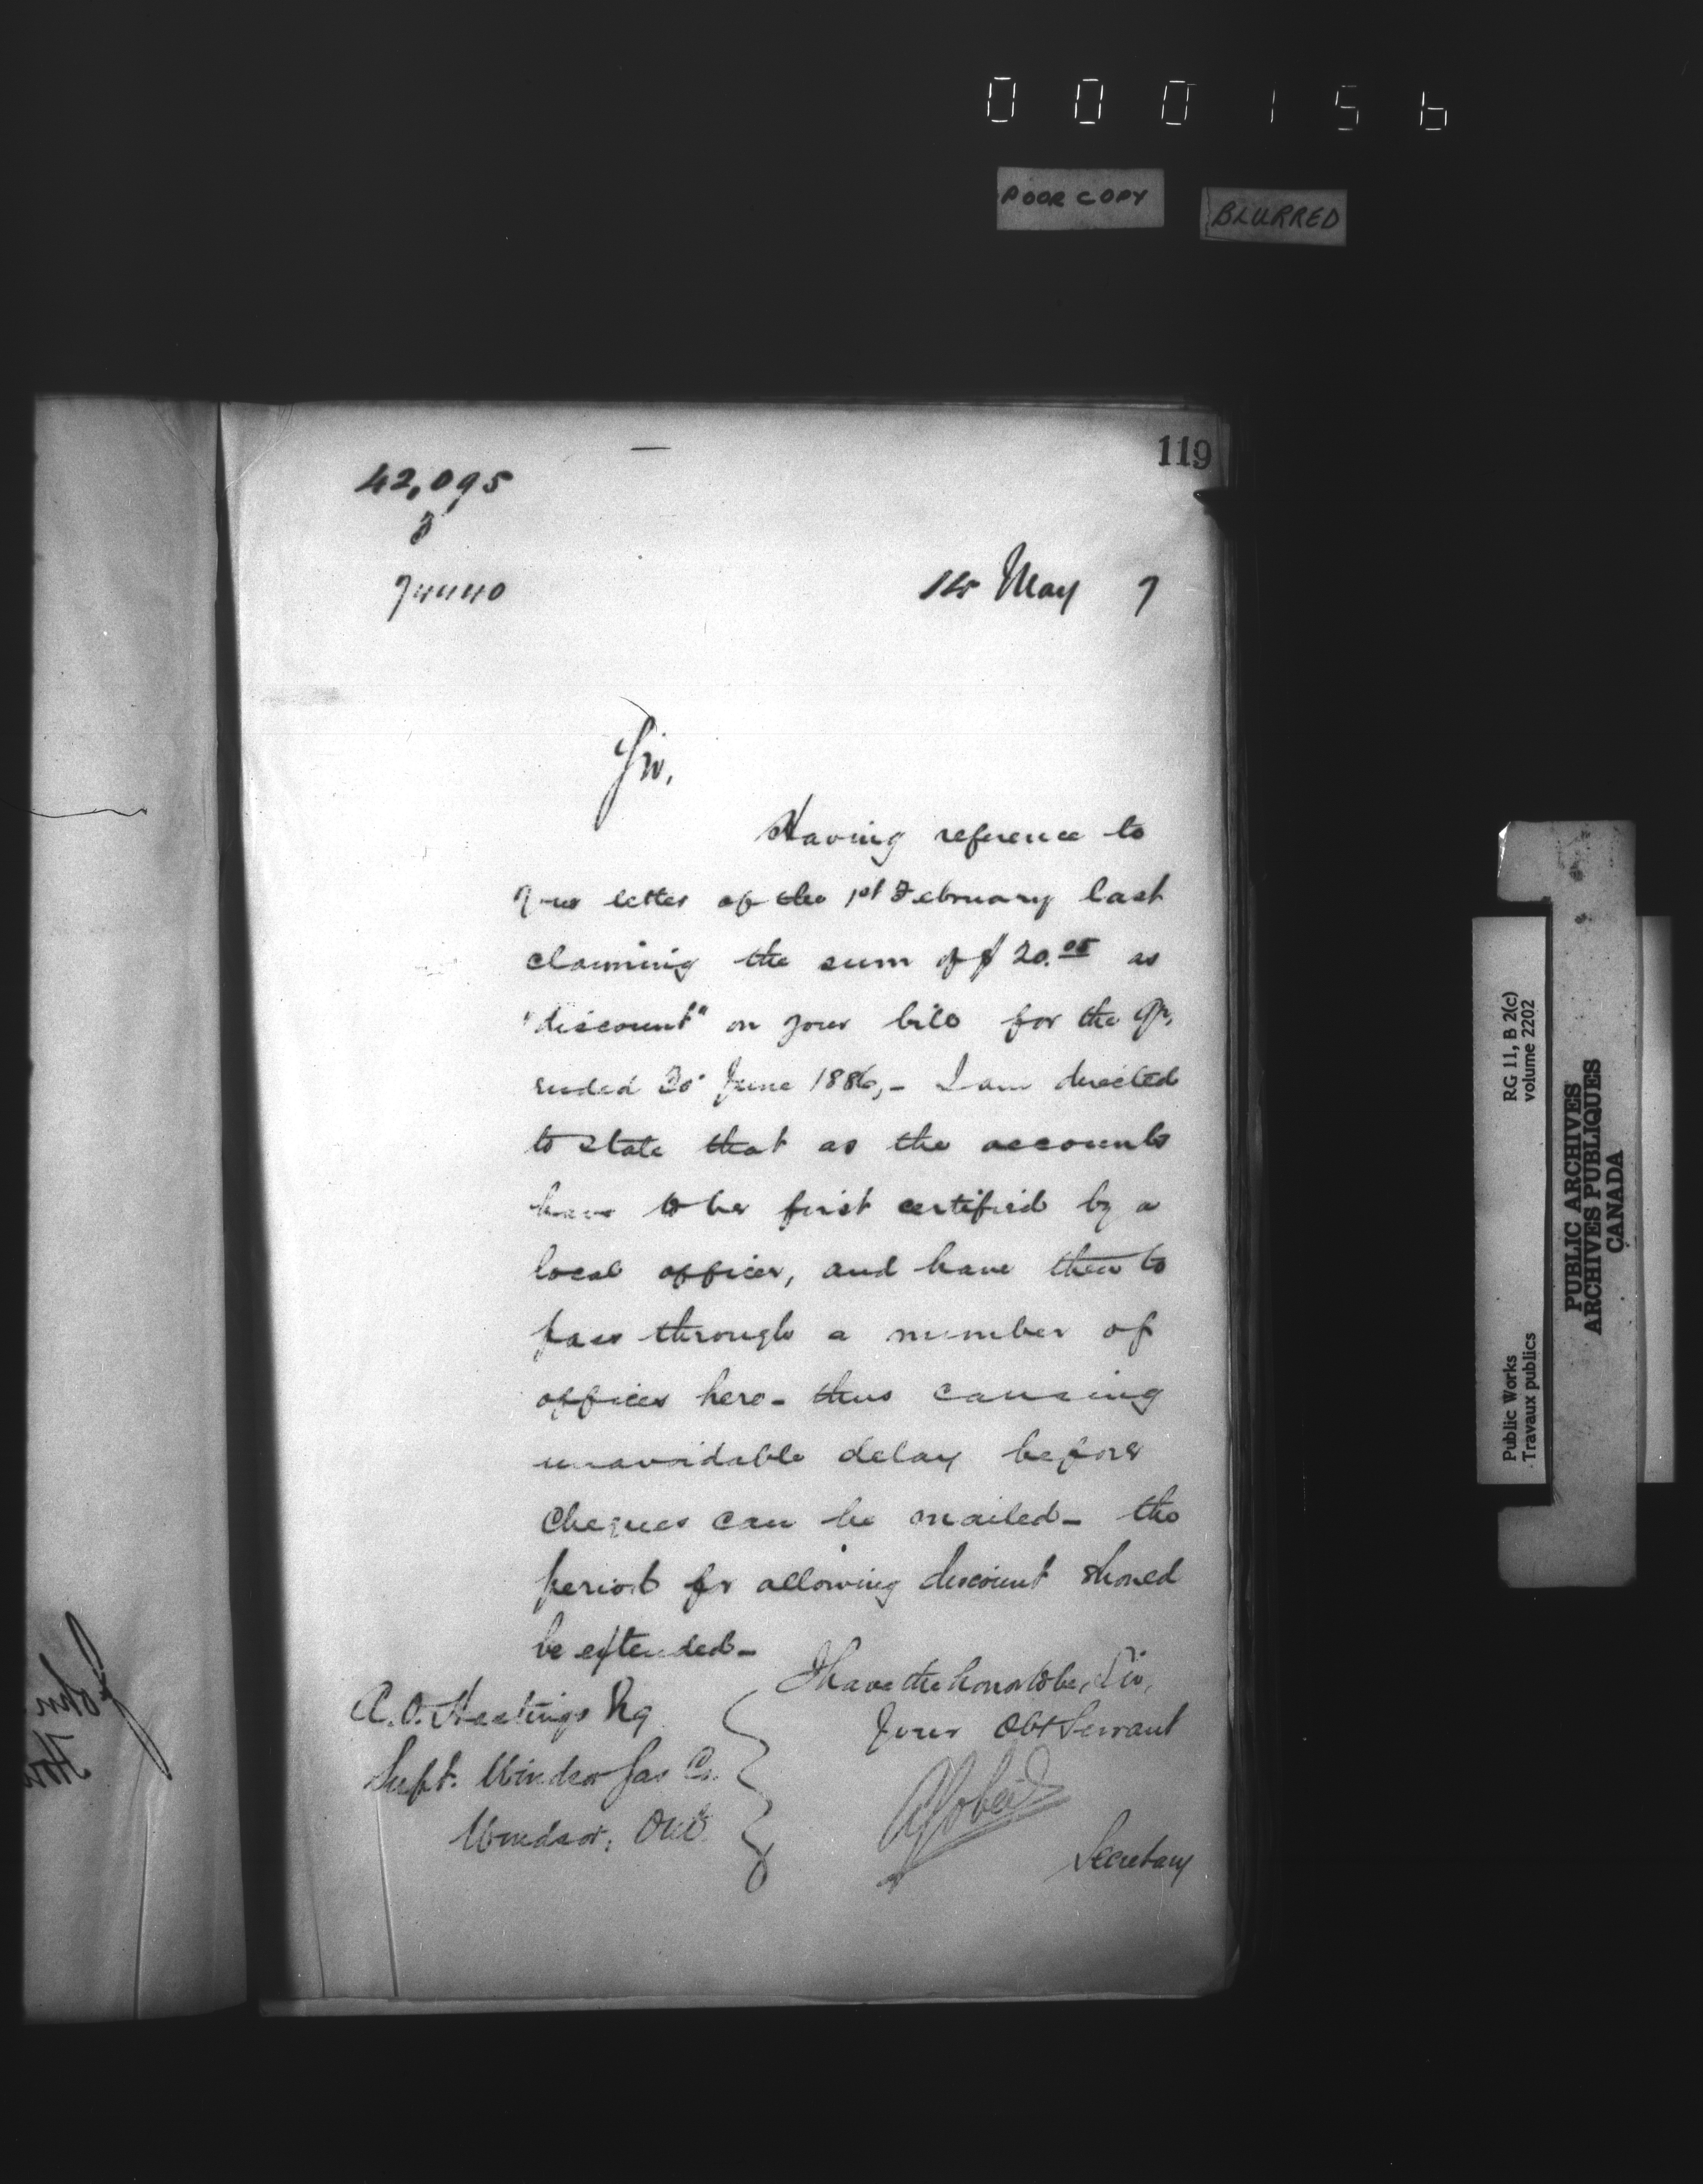 0 0 0 1 5 6
POOR COPY
BLURRED
119
42,095
May 7
Sir,
Having reference to
your letter of the 1st February last
claiming the sum of $20.05 as
"discount" on your bill for the qr.
ended 30 June 1886,- I am directed
to state that as the accounts
have to be first certified by a
local officer, and have then to
pass through a number of
offices here - thus causing
unavoidable delay before
Cheques can be mailed - the
period for allowing discount should
be extended -
I have the honor to be, Sir,
Your Obt Servant
A Gobeil
Secretary
A.O. Hastings Esq
Supt. Windsor Gas Co.
Windsor, Ont.
Public Works
Travaux publics
RG 11, B 2(c)
volume 2202
PUBLIC ARCHIVES
ARCHIVES PUBLIQUES
CANADA